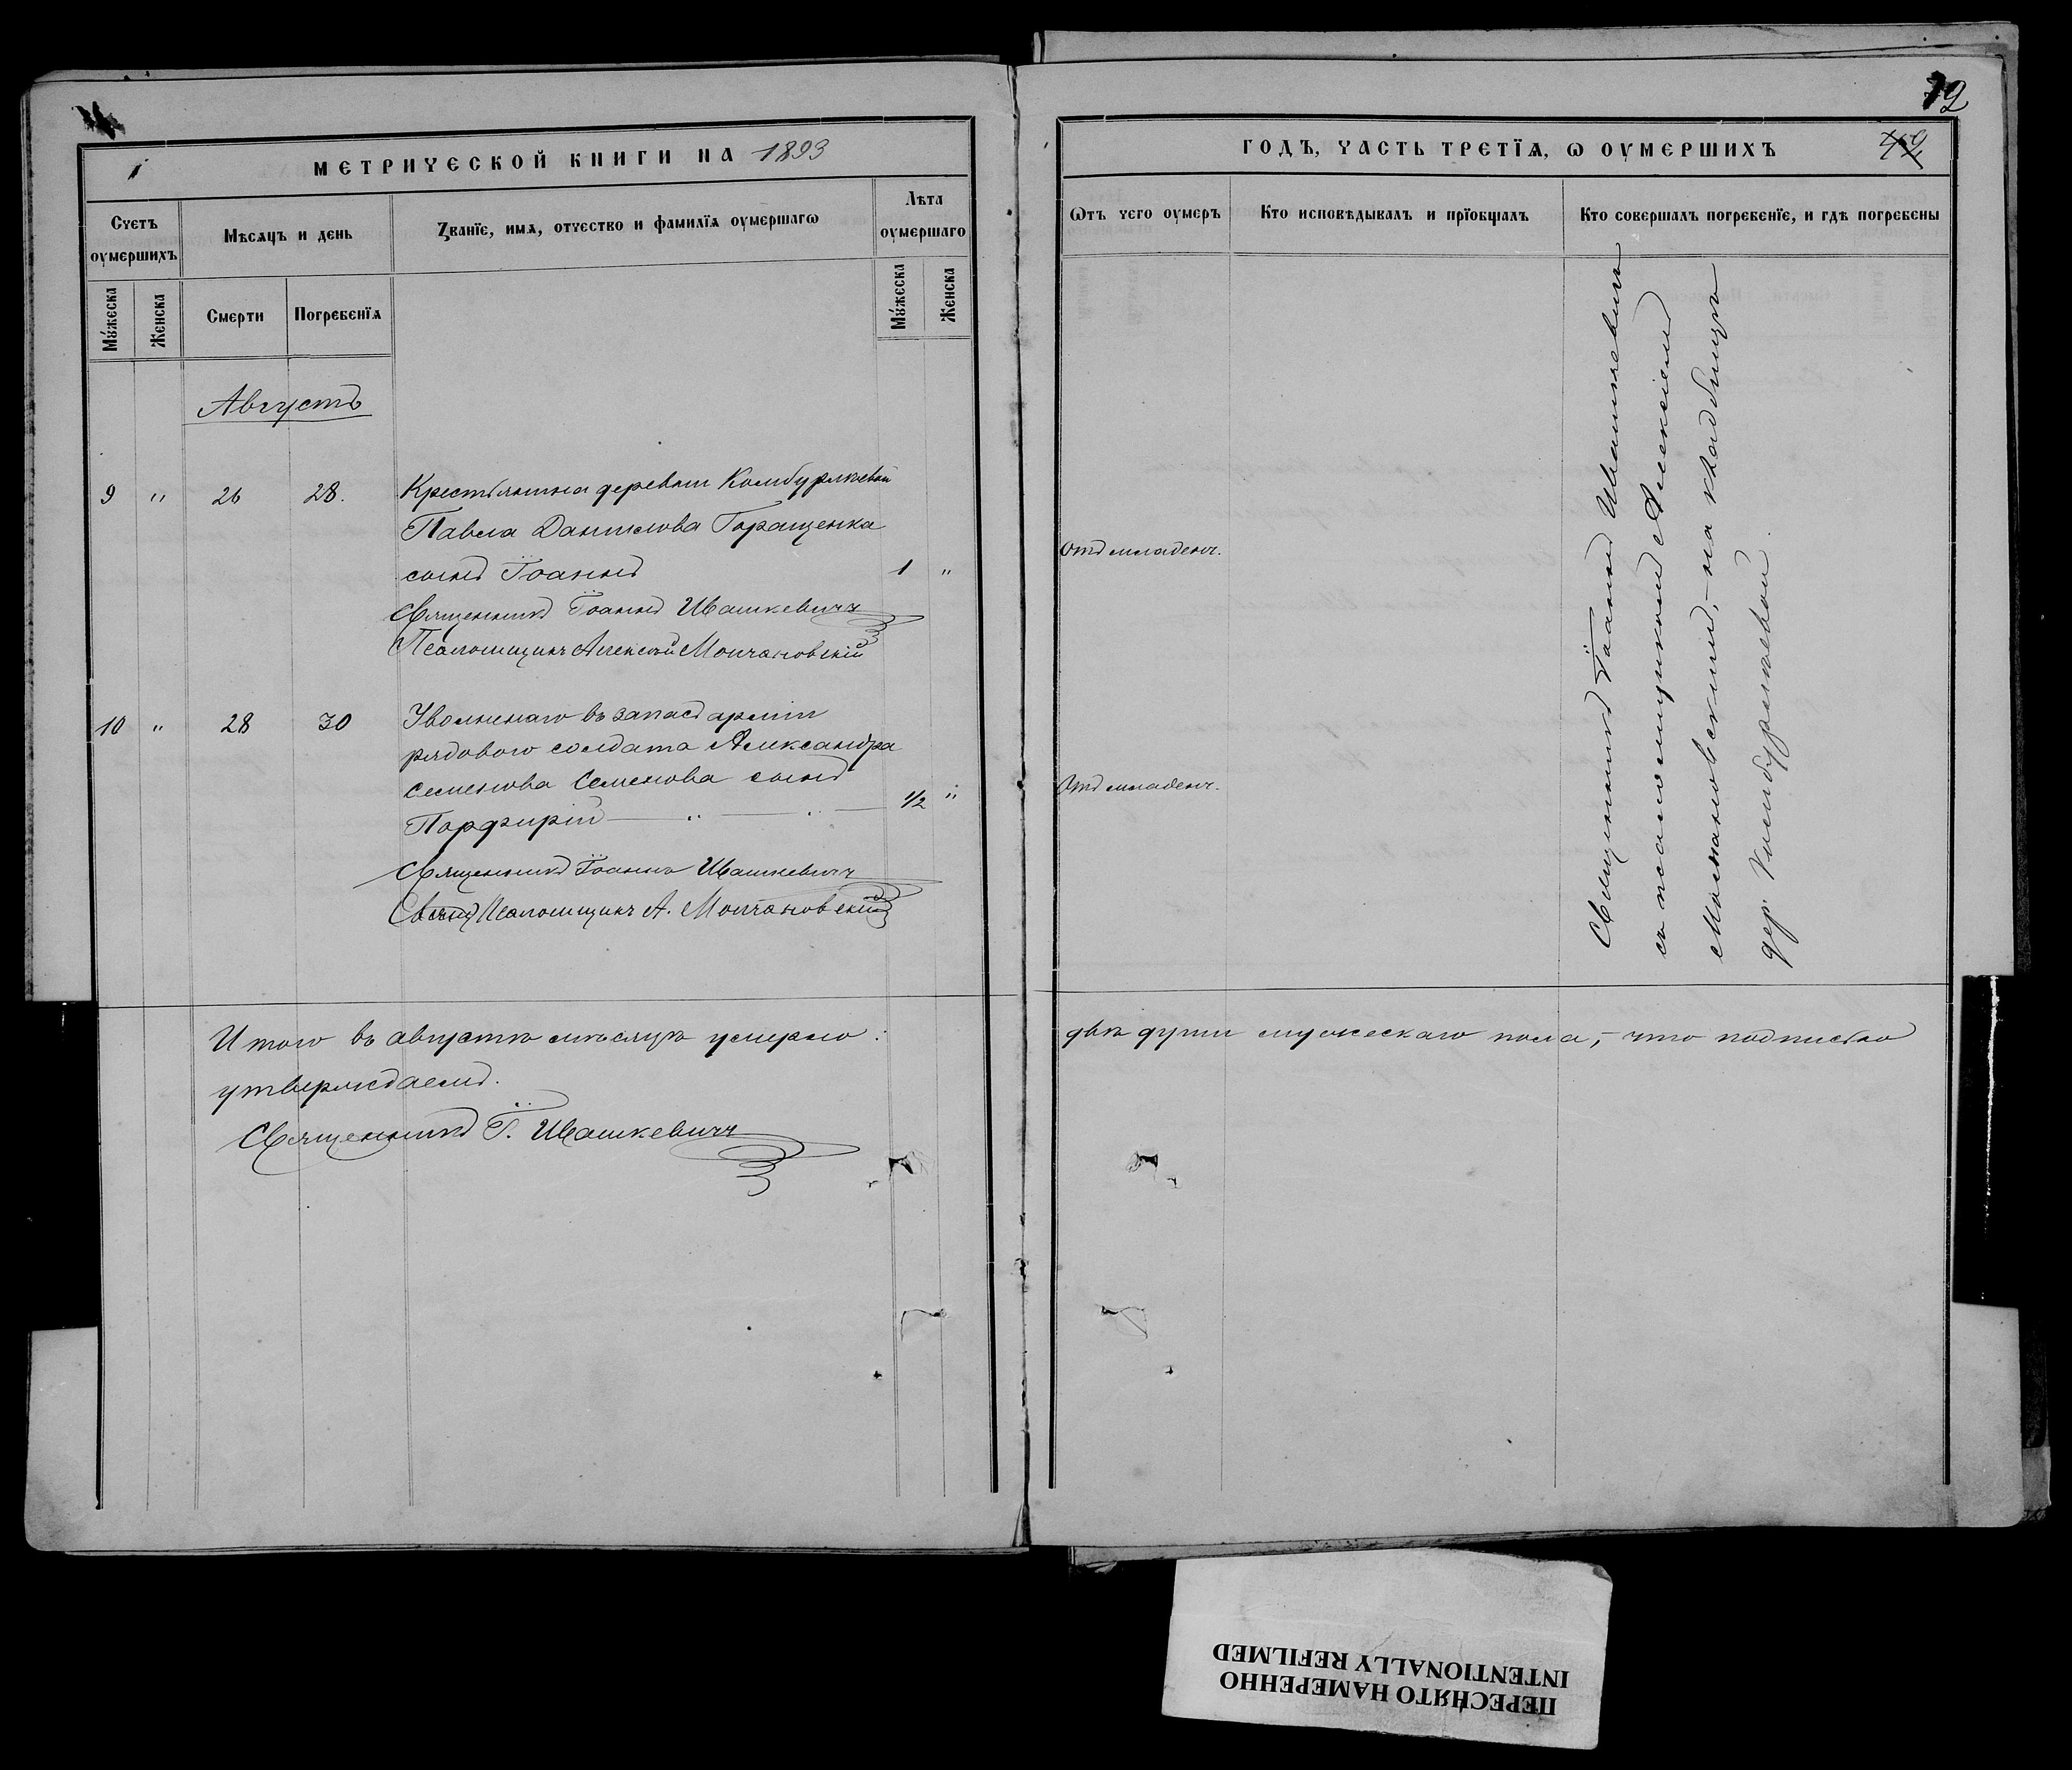 МЕТРИЧЕСКОЙ КНИГИ НА 1893
Счетъ оумершихъ
Мѣсяцъ и день
Званїе, имя, отчество и фамилїя оумершагѡ
Лѣта оумершаго
Мꙋжеска
Женска
Смерти
Погребенїя
Мꙋжеска
Женска
Августъ
9 " 26 28. Крестьянина деревни Камбурлиевки
Павла Данилова Горащенка
сынъ Іоаннъ 1 "
Священникъ Іоаннъ Ивашкевичъ
Псаломщикъ Алексѣй Молчановскій
10 " 28 30 Уволеннаго въ запасъ арміи
рядового солдата Александра
Семенова Семенова сынъ
Порфирій 1/2 "
Священникъ Іоаннъ Ивашкевичъ
Псаломщикъ А. Молчановскій
Итого въ августѣ мѣсяцѣ умерло:
утверждаемъ.
Священникъ І. Ивашкевичъ
12
ГОДЪ, ЧАСТЬ ТРЕТЇЯ, Ѡ ОУМЕРШИХЪ
Ѿтъ чего оумеръ
Кто исповѣдывалъ и прїобщалъ
Кто совершалъ погребенїе, и гдѣ погребены
Отъ младенч.
Отъ младенч.
Священникъ Іоаннъ Ивашкевичъ
съ псаломщикомъ Алексіемъ
Молчановскимъ, - на кладбищѣ
дер. Камбурлиевки.
двѣ души мужескаго пола, - что подписью
ПЕРЕСНЯТО НАМЕРЕННО
INTENTIONALLY REFILMED